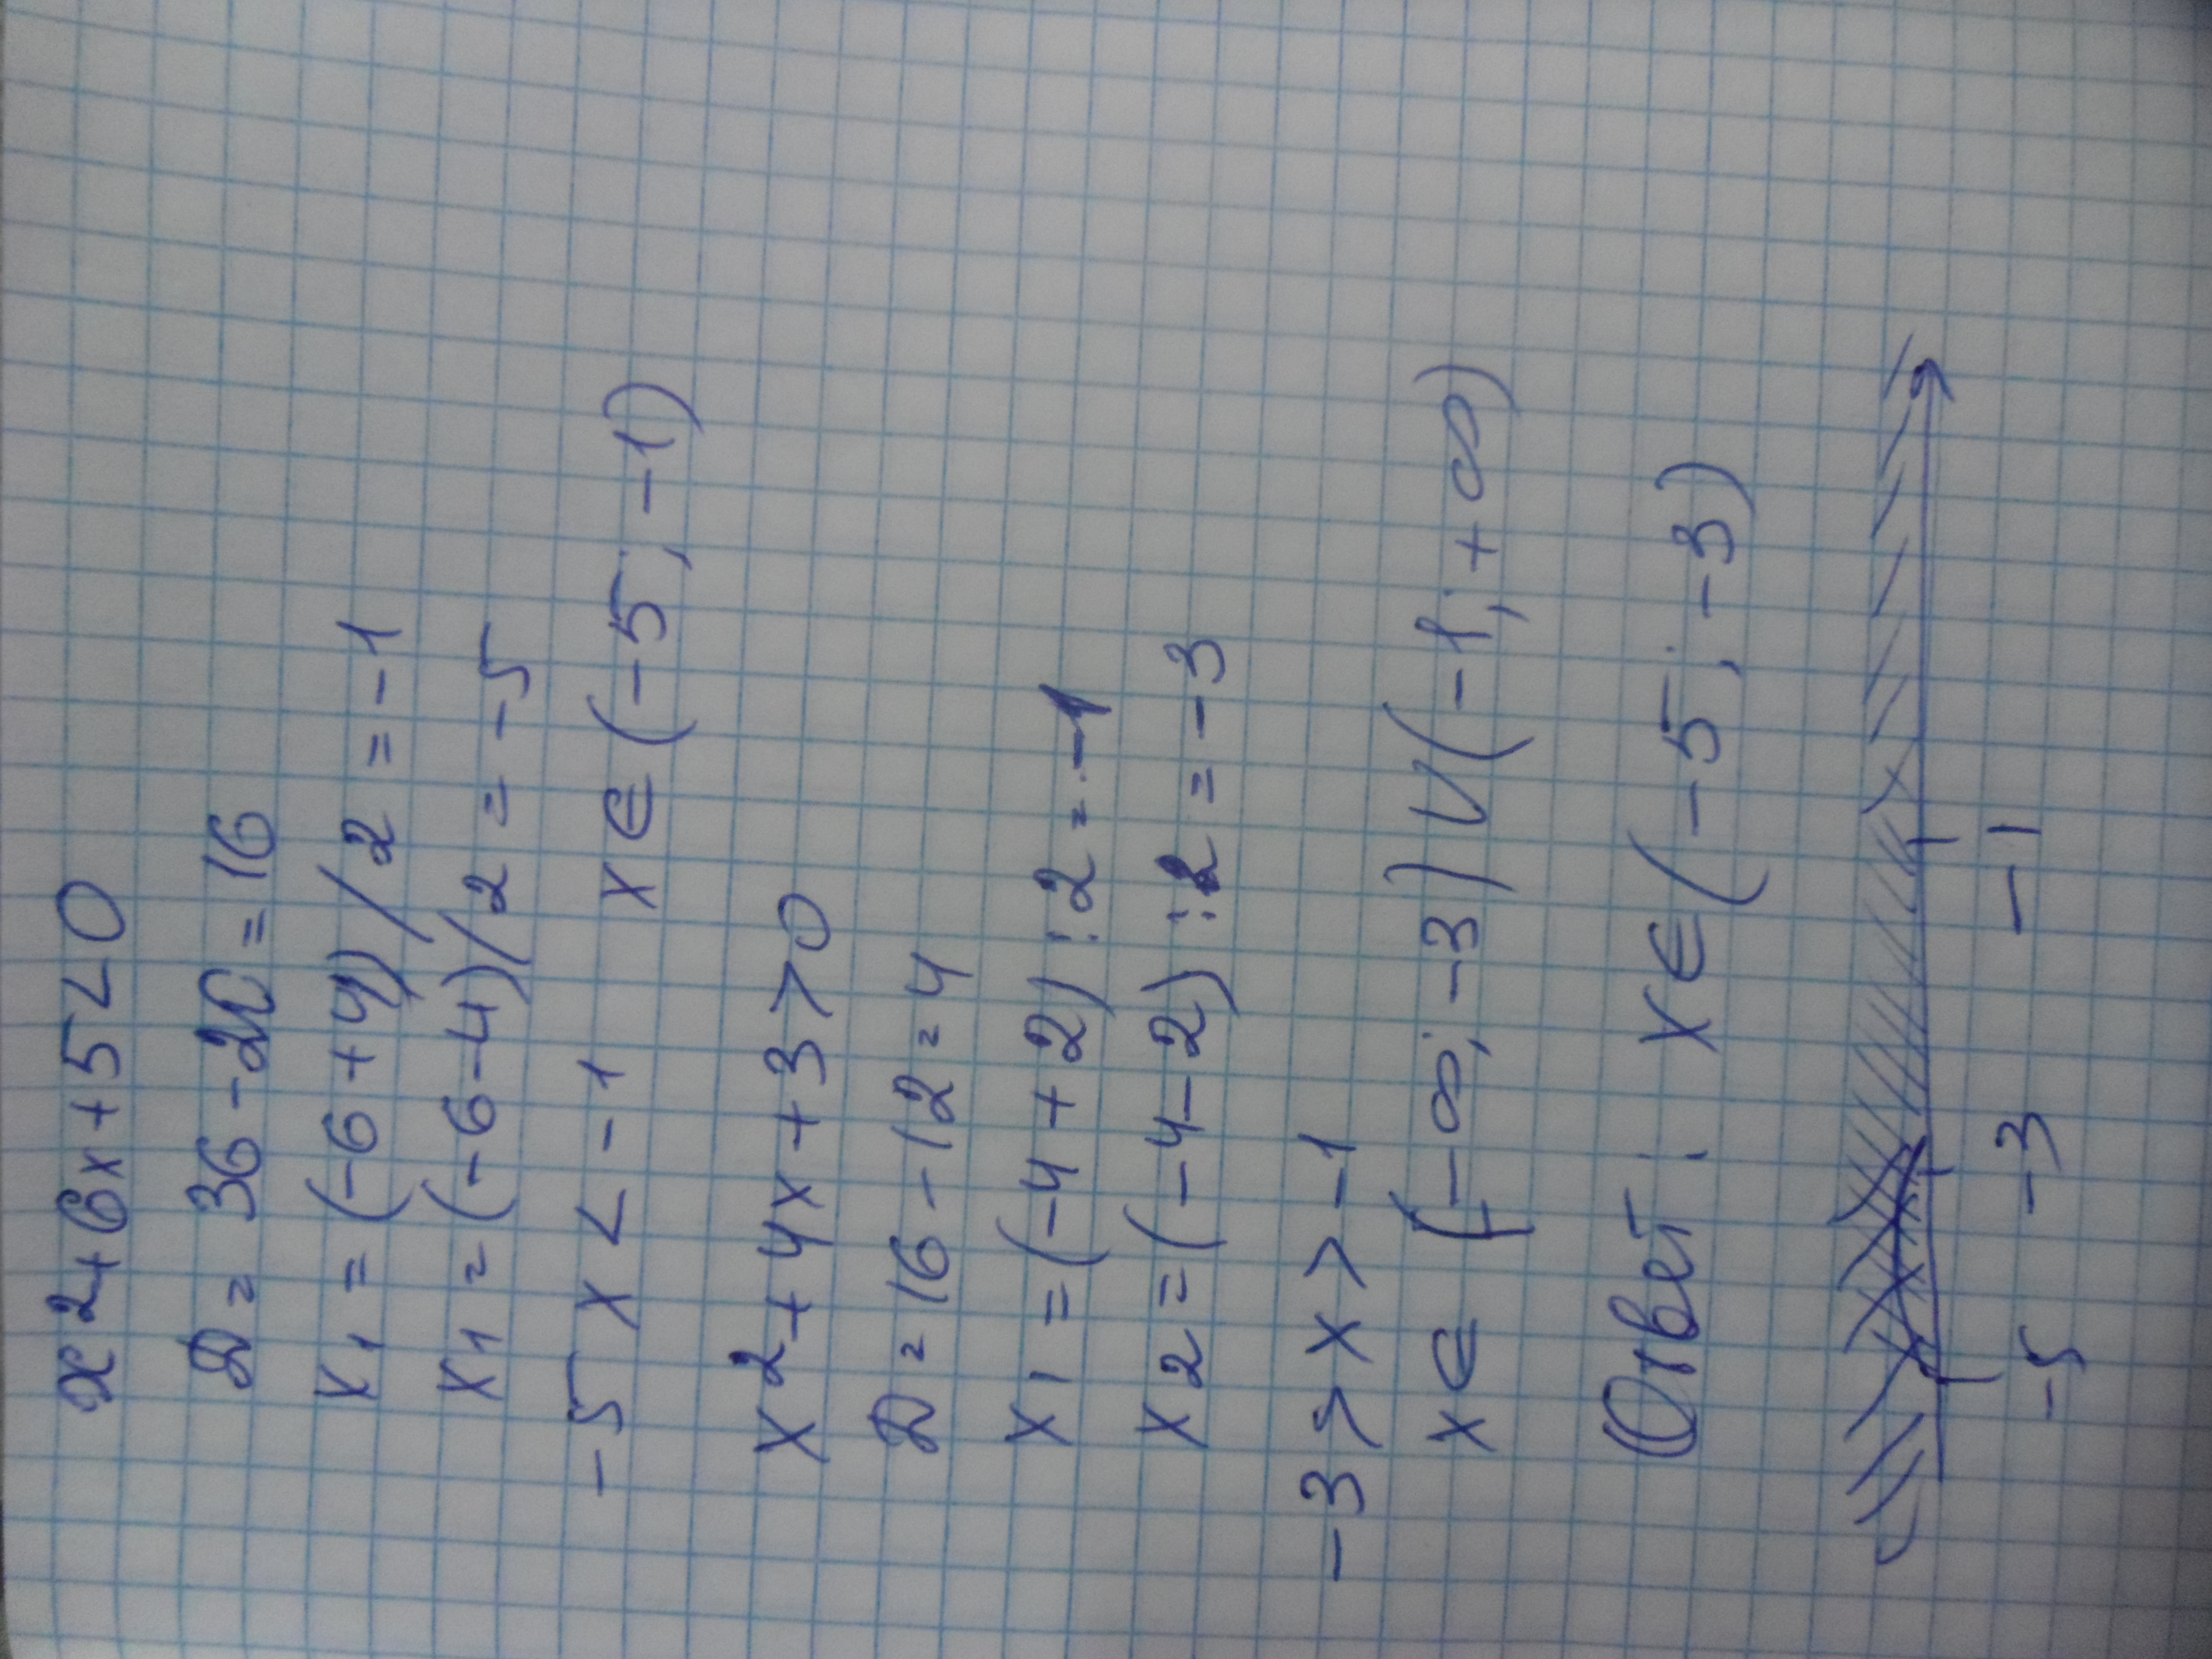 x²+6x+5<0
D = 36-20=16
x₁ = (-6+4)/2 = -1
x₁ = (-6-4)/2 = -5
-5 x < -1 x∈(-5; -1)
x²+4x+3>0
D=16-12=4
x₁ =(-4+2):2=-1
x₂=(-4-2):2=-3
-3>x>-1
x∈ (-∞; -3)∪(-1;+∞)
Ответ: x∈(-5; -3)
-5 -3 -1